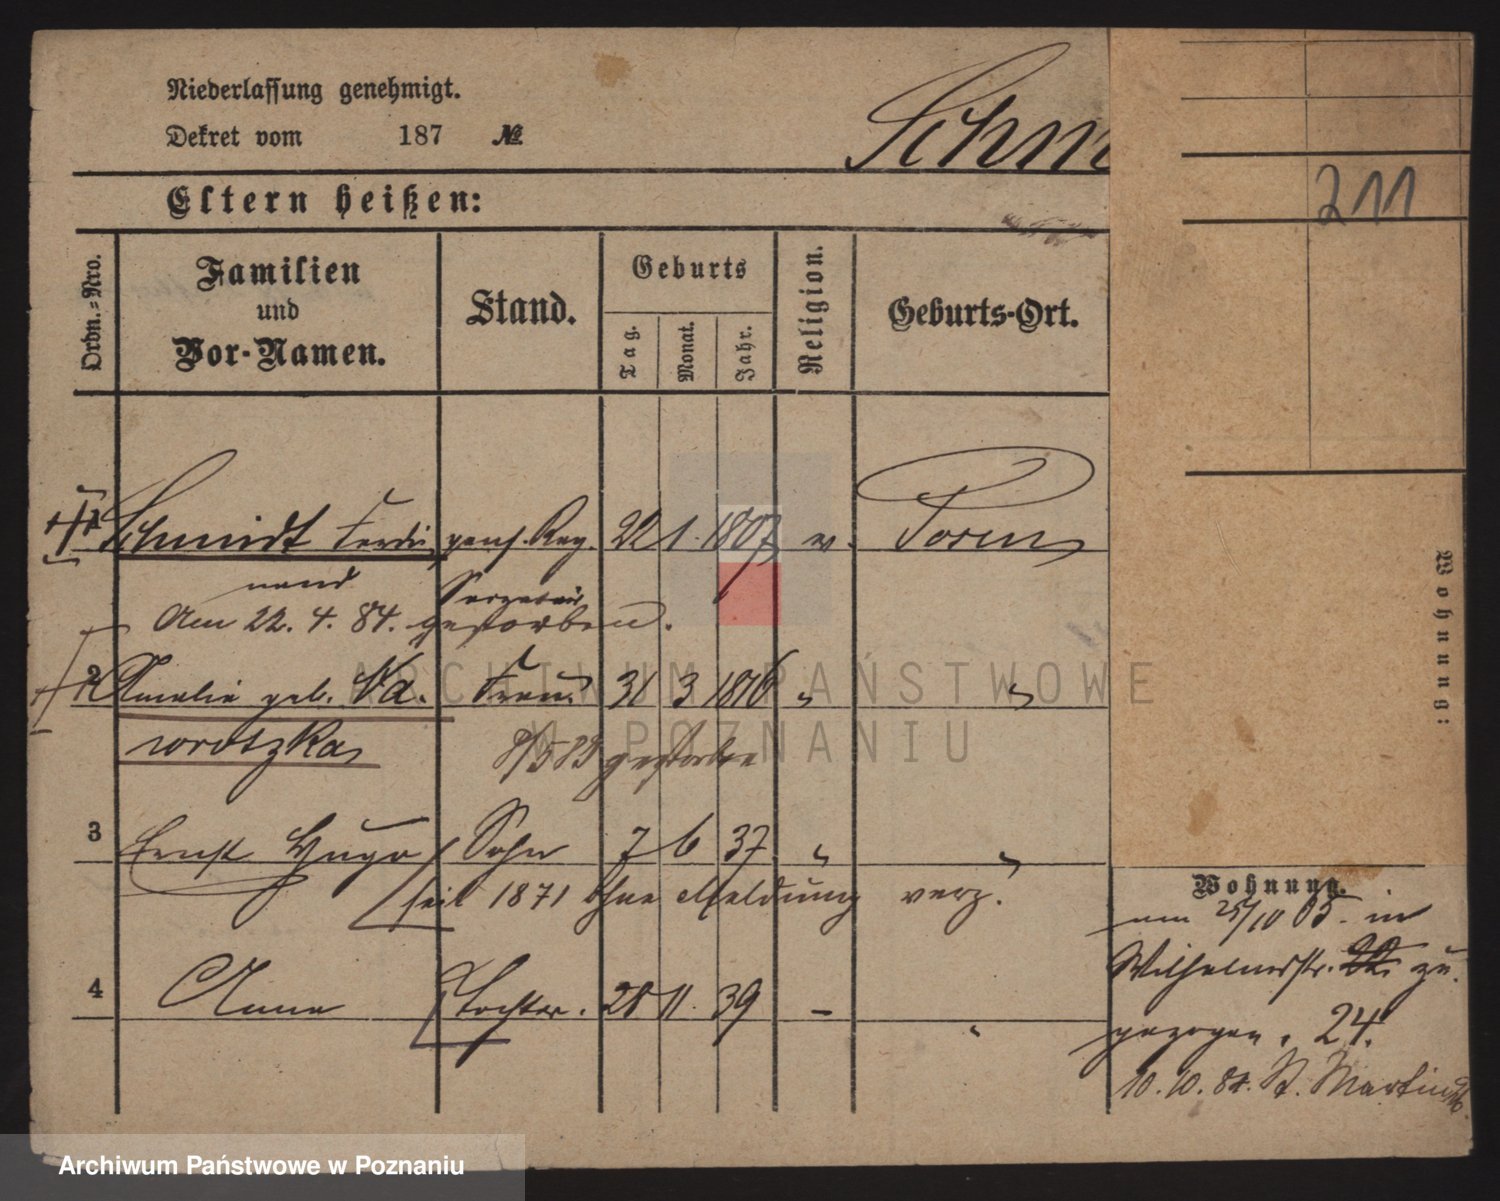 Niederlassung genehmigt.
Dekret vom 187 №
Schm
211
Eltern heißen:
Ordn.-Nro.
Familien und Vor-Namen.
Stand.
Geburts
Tag. Monat. Jahr.
Religion.
Geburts-Ort.
1 Schmidt Ferdi pens. Reg. 22 1. 1807 ev. Posen
nand Secretair
Am 22. 4. 84. gestorben.
2 Amalie geb. Wa. Frau 31 3 1816 "
wrotzka 8/5 89 gestorben
3 Ernst Hugo Sohn 7 6 37 "
seit 1871 ohne Meldung verz.
4 Anna Tochter. 28 11. 39 -
Wohnung:
Wohnung.
am 25/10 65. in
Wilhelmstr. zu
gezogen. 24.
10. 10. 84. St. Martin
ARCHIWUM PAŃSTWOWE
W POZNANIU
Archiwum Państwowe w Poznaniu